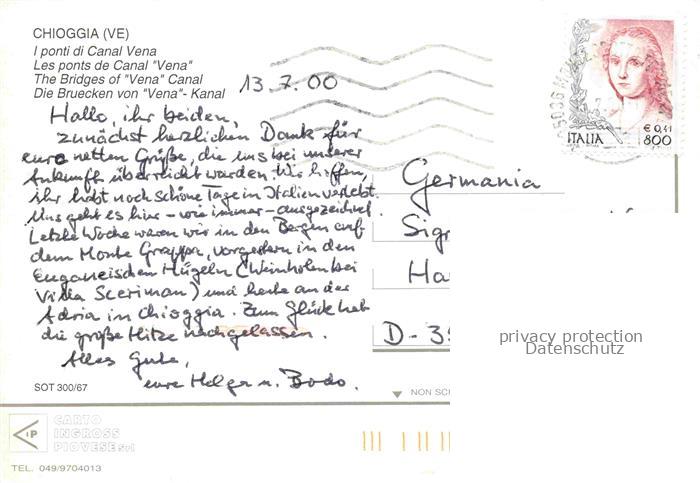 CHIOGGIA (VE)
I ponti di Canal Vena
Les ponts de Canal "Vena"
The Bridges of "Vena" Canal
Die Bruecken von "Vena"- Kanal
13.7.00
Hallo, ihr beiden,
zunächst herzlichen Dank für
eure netten Grüße, die uns bei unserer
Ankunft überreicht wurden. Wir hoffen,
ihr habt noch schöne Tage in Italien verlebt.
Uns geht es hier - wie immer - ausgezeichnet.
Letzte Woche waren wir in den Bergen auf
dem Monte Grappa, vorgestern in den
Euganeischen Hügeln (Weinholen bei
Villa Sceriman) und heute an der
Adria in Chioggia. Zum Glück hat
die große Hitze nachgelassen.
Alles Gute,
eure Helga u. Bodo.
ITALIA
€ 0,41
800
Germania
Sig
Ha
D-35
privacy protection
Datenschutz
SOT 300/67
NON SC
CARTO
INGROSS
PIOVESE Srl
TEL. 049/9704013